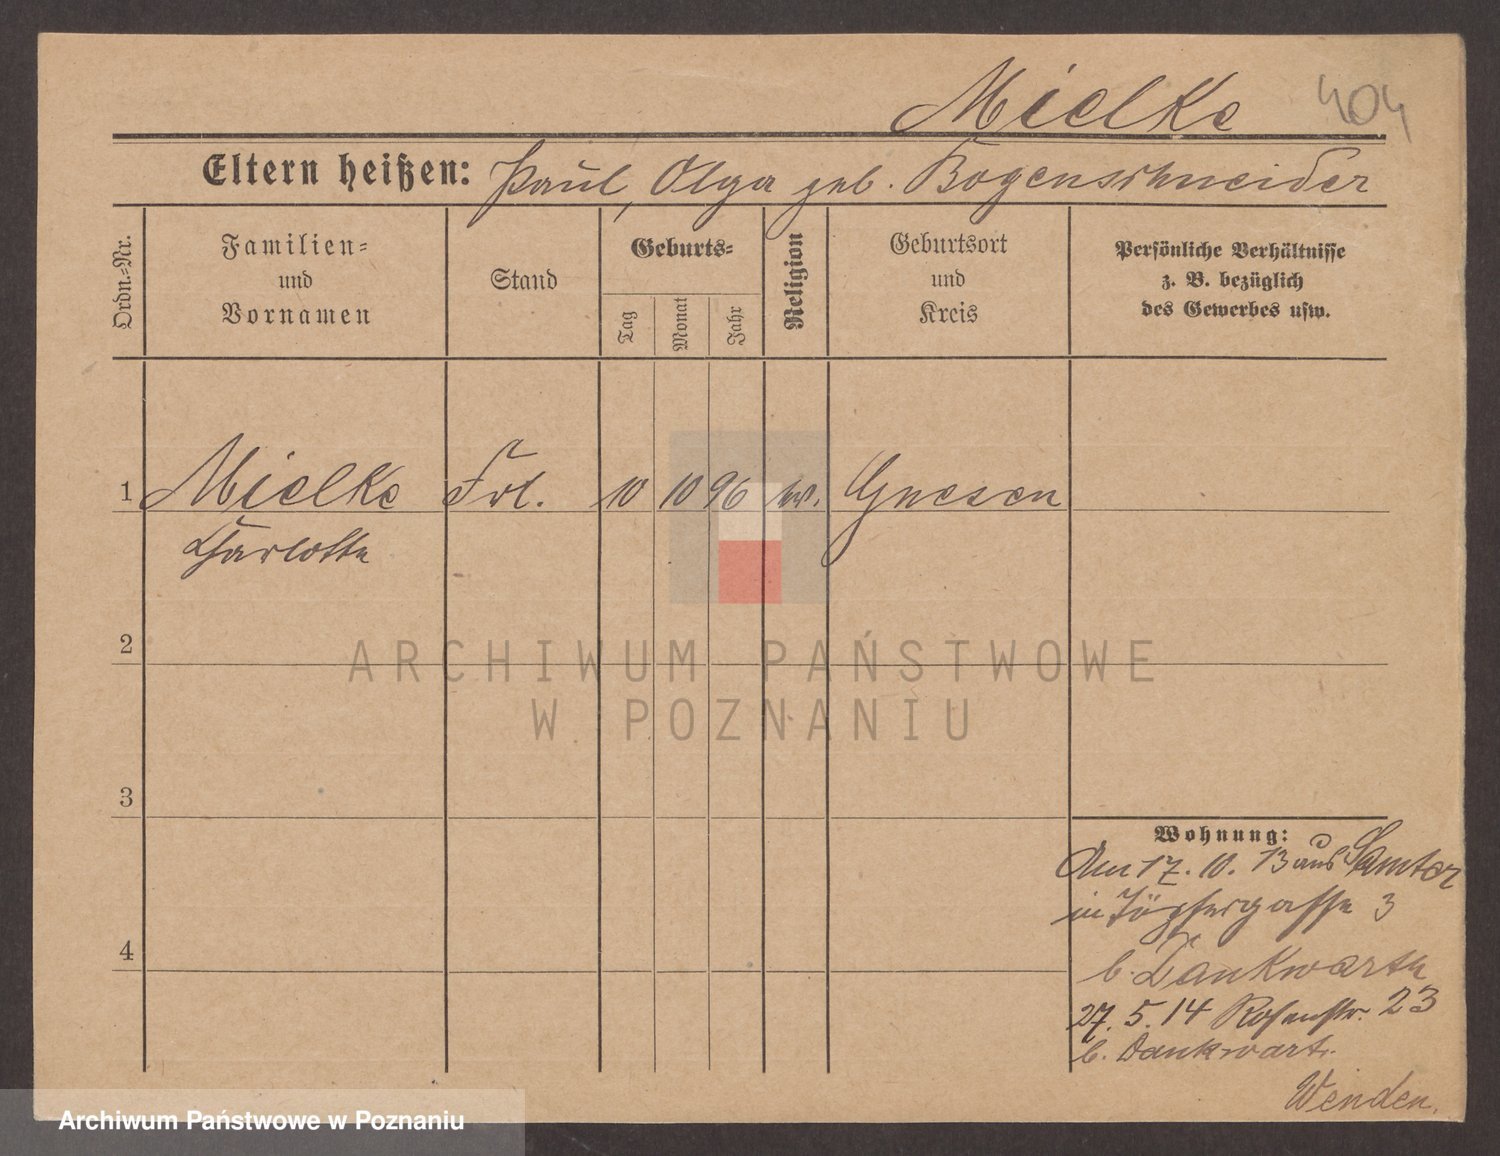 Mielke 404
Eltern heißen: Paul, Olga geb. Bogenschneider
Ordn.-Nr.
Familien-
und
Vornamen
Stand
Geburts-
Tag
Monat
Jahr
Religion
Geburtsort
und
Kreis
Persönliche Verhältnisse
z. B. bezüglich
des Gewerbes usw.
1 Mielke Frl. 10 10 96 Gnesen
Charlotte
2
ARCHIWUM PAŃSTWOWE
W POZNANIU
3
Wohnung:
Am 17. 10. 13 aus Samter
in Töpfergasse 3
4
b. Dankwarth
27. 5. 14 Rosenstr. 23
b. Dankwart.
Archiwum Państwowe w Poznaniu